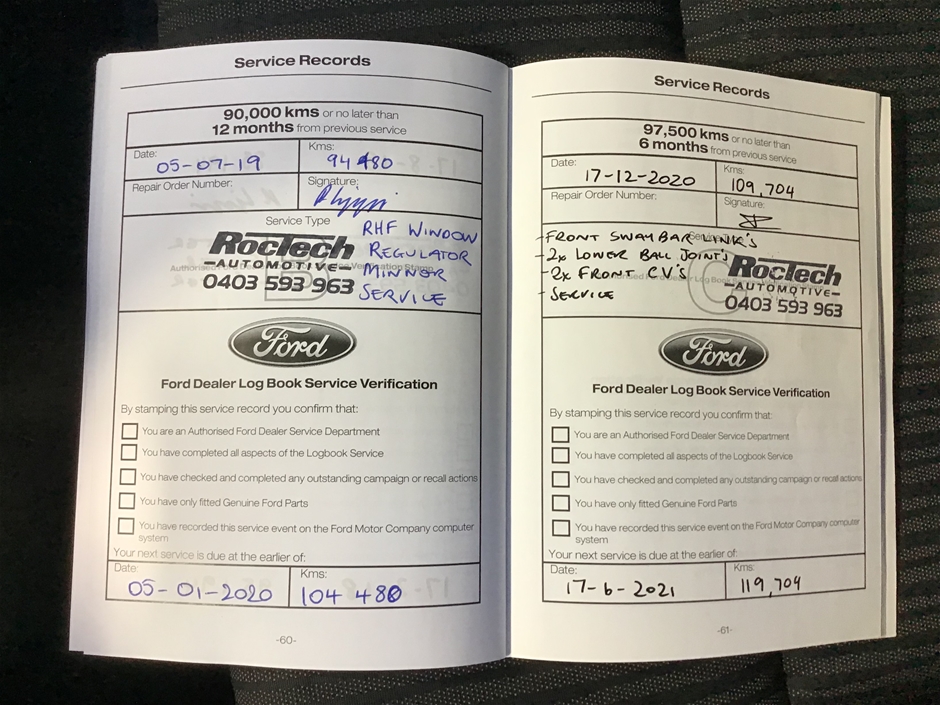 Service Records
90,000 kms or no later than
12 months from previous service
Date:
05-07-19
Kms:
94 480
Repair Order Number:
Signature:
Service Type
RHF WINDOW
REGULATOR
MINNOR
SERVICE
RocTech
-AUTOMOTIVE-
0403 593 963
Ford
Ford Dealer Log Book Service Verification
By stamping this service record you confirm that:
You are an Authorised Ford Dealer Service Department
You have completed all aspects of the Logbook Service
You have checked and completed any outstanding campaign or recall actions
You have only fitted Genuine Ford Parts
You have recorded this service event on the Ford Motor Company computer
system
Your next service is due at the earlier of:
Date:
05-01-2020
Kms:
104 480
-60-
Service Records
97,500 kms or no later than
6 months from previous service
Date:
17-12-2020
Kms:
109,704
Repair Order Number:
Signature:
-FRONT SWAY BAR LINK'S
-2x LOWER BALL JOINT'S
-2x FRONT CV'S
-SERVICE
RocTech
-AUTOMOTIVE-
0403 593 963
Ford
Ford Dealer Log Book Service Verification
By stamping this service record you confirm that:
You are an Authorised Ford Dealer Service Department
You have completed all aspects of the Logbook Service
You have checked and completed any outstanding campaign or recall actions
You have only fitted Genuine Ford Parts
You have recorded this service event on the Ford Motor Company computer
system
Your next service is due at the earlier of:
Date:
17-6-2021
Kms:
119,704
-61-